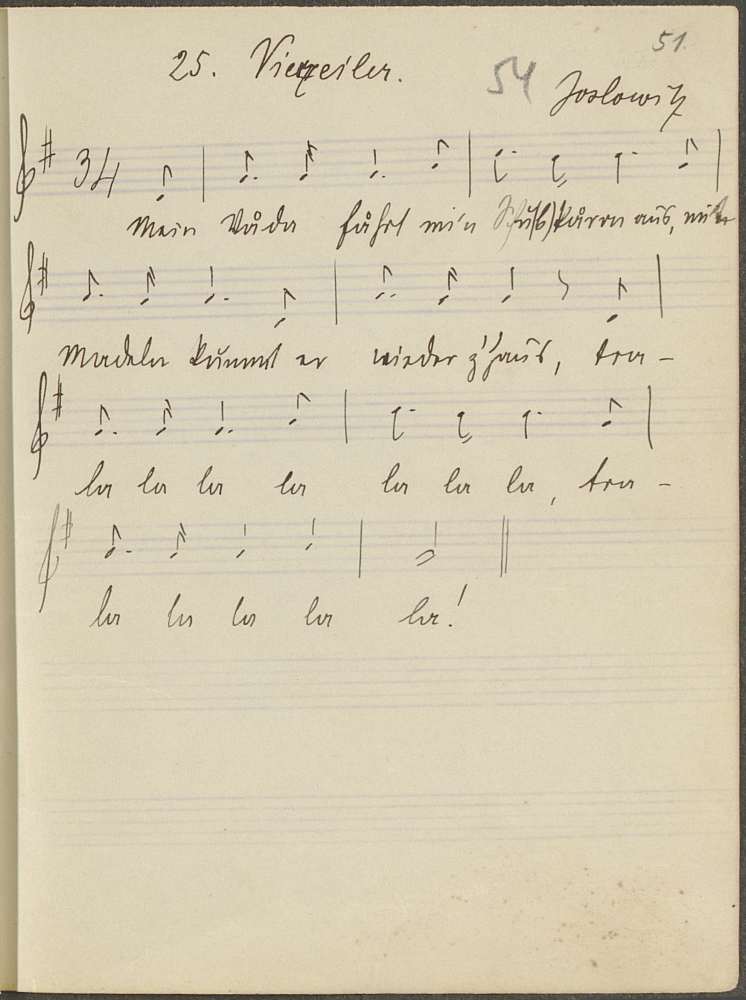 51.
25. Vierzeiler.
54
Joslowitz
3/4
Mein Våda fåhrt mi'n Schu(b)kårrn aus, mit
Madeln kummt er wieder z'Haus, tra-
la la la la la la la, tra-
la la la la la!